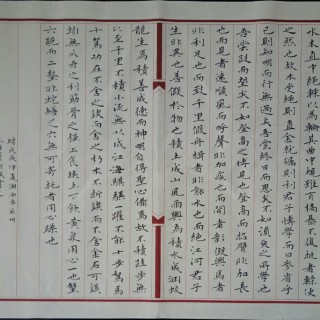 水木直中繩輮以為輪其曲中規雖有槁暴不復挺者輮使
之然也故木受繩則直金就礪則利君子博學而日參省乎
己則知明而行無過矣吾嘗終日而思矣不如須臾之所學也
吾嘗跂而望矣不如登高之博見也登高而招臂非加長
也而見者遠順風而呼聲非加疾也而聞者彰假輿馬者
非利足也而致千里假舟楫者非能水也而絕江河君子
生非異也善假於物也積土成山風雨興焉積水成淵蛟
龍生焉積善成德而神明自得聖心備焉故不積跬步無
以至千里不積小流無以成江海騏驥一躍不能十步駑馬
十駕功在不舍鍥而舍之朽木不折鍥而不舍金石可鏤
螾無爪牙之利筋骨之強上食埃土下飲黃泉用心一也蟹
六跪而二螯非蛇鱔之穴無可寄托者用心躁也
時戊戌年夏湖南